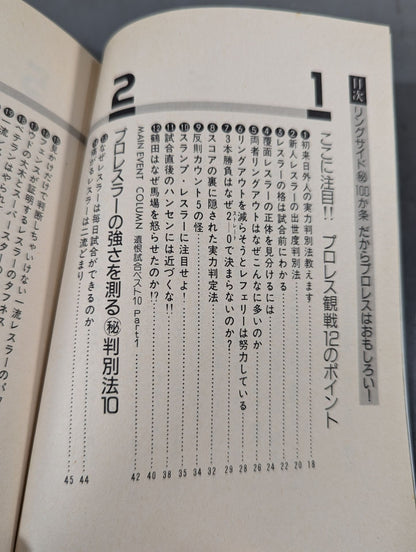 目次 リングサイド㊙100か条 だからプロレスはおもしろい!
1 ここに注目!! プロレス観戦12のポイント
❶初来日外人の実力判別法教えます 18
❷新人レスラーの出世度判別法 20
❸レスラーの格は試合前にわかる 22
❹覆面レスラーの正体を見分けるには 24
❺両者リングアウトはなぜこんなに多いのか 26
❻リングアウトを減らそうとレフェリーは努力している 28
❼3本勝負はなぜ2-0で決まらないのか? 29
❽スコアの裏に隠された実力判定法 32
❾反則カウント5の怪 34
❿スランプ・レスラーに注目せよ! 35
⓫試合直後のハンセンには近づくな!! 38
⓬鶴田はなぜ馬場を怒らせたのか!? 40
MAIN EVENT COLUMN 遺恨試合ベスト10 Part1 42
2 プロレスラーの強さを測る㊙判別法10
⓭なぜレスラーは毎日試合ができるのか 44
がるレスラーは二流どまり 45
見かけだけで判断しちゃいけない一流レスラーの
ランスが証明するレスラーのバ
ッドの太さとスーパースターのタフネス
ベテランはやられ
一流どし